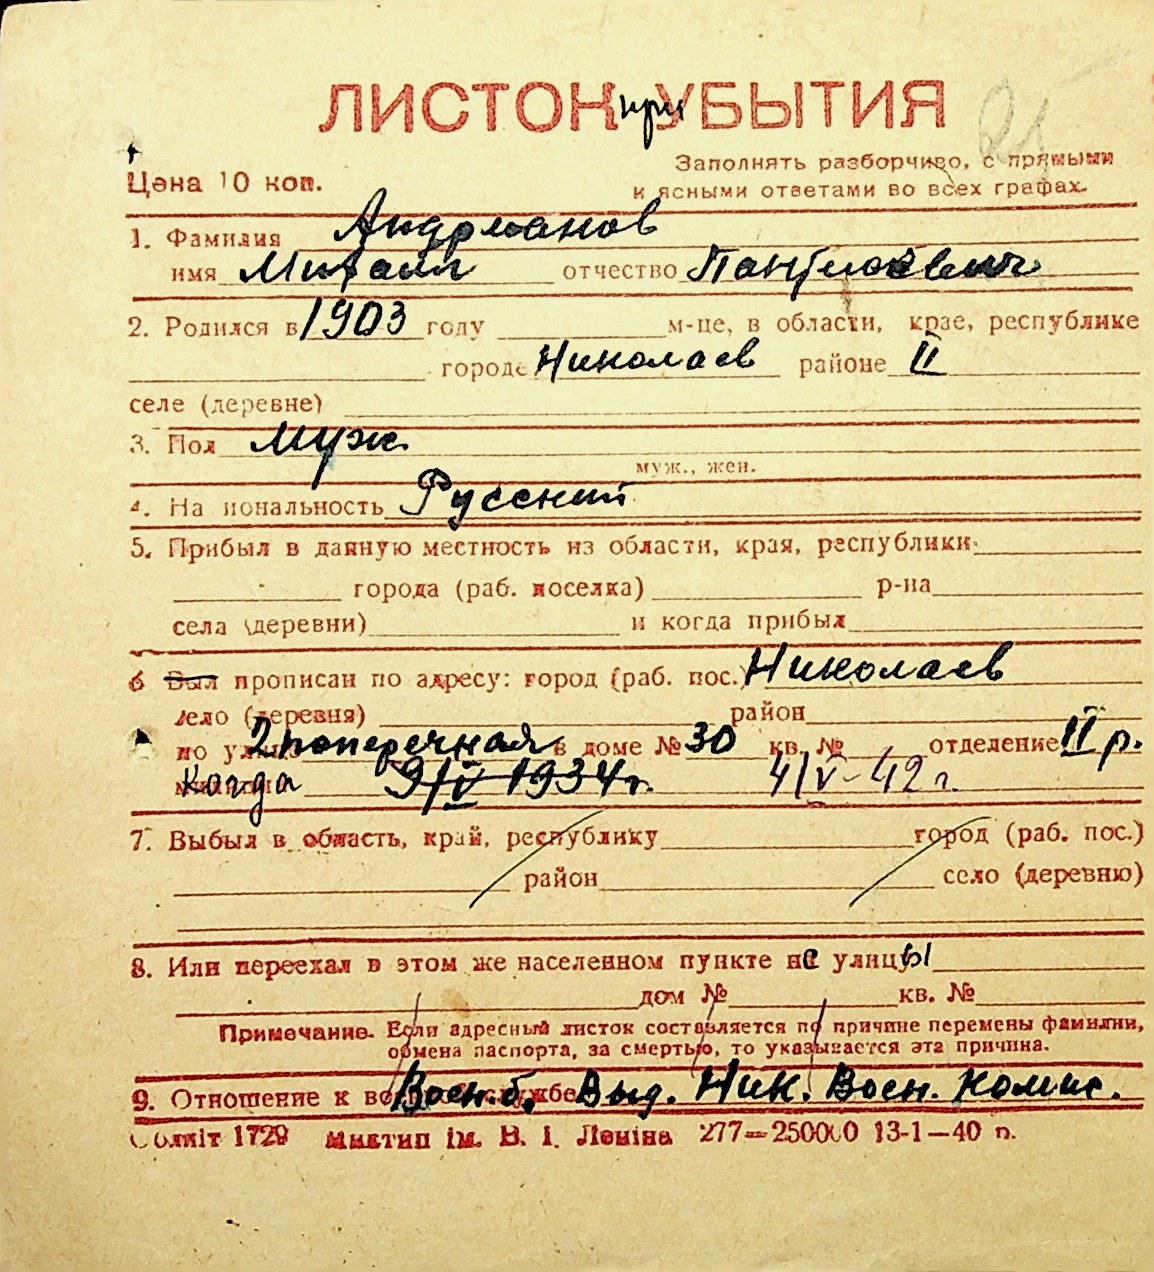 ЛИСТОК при УБЫТИЯ
21
Цена 10 коп.
Заполнять разборчиво, с прямыми
и ясными ответами во всех графах.
1. Фамилия Андрианов
имя Михаил отчество
2. Родился в 1903 году м-це, в области, крае, республике
городе Николаев районе II
селе (деревне)
3. Пол муж.
муж., жен.
4. Национальность Русский
5. Прибыл в данную местность из области, края, республики
города (раб. поселка) р-на
села (деревни) и когда прибыл
6 Был прописан по адресу: город (раб. пос.) Николаев
село (деревня) район
по улице 2 поперечная в доме № 30 кв. № отделение II р.
Когда 9/V 1934 г. 4/V-42 г.
7. Выбыл в область, край, республику город (раб. пос.)
район село (деревню)
8. Или переехал в этом же населенном пункте не улицы
дом № кв. №
Примечание. Если адресный листок составляется по причине перемены фамилии,
обмена паспорта, за смертью, то указывается эта причина.
9. Отношение к службе Воен.б. Выд. Ник. Воен. Комис.
Облліт 1729 Миктип ім. В. І. Леніна 277—250000 13-1—40 п.